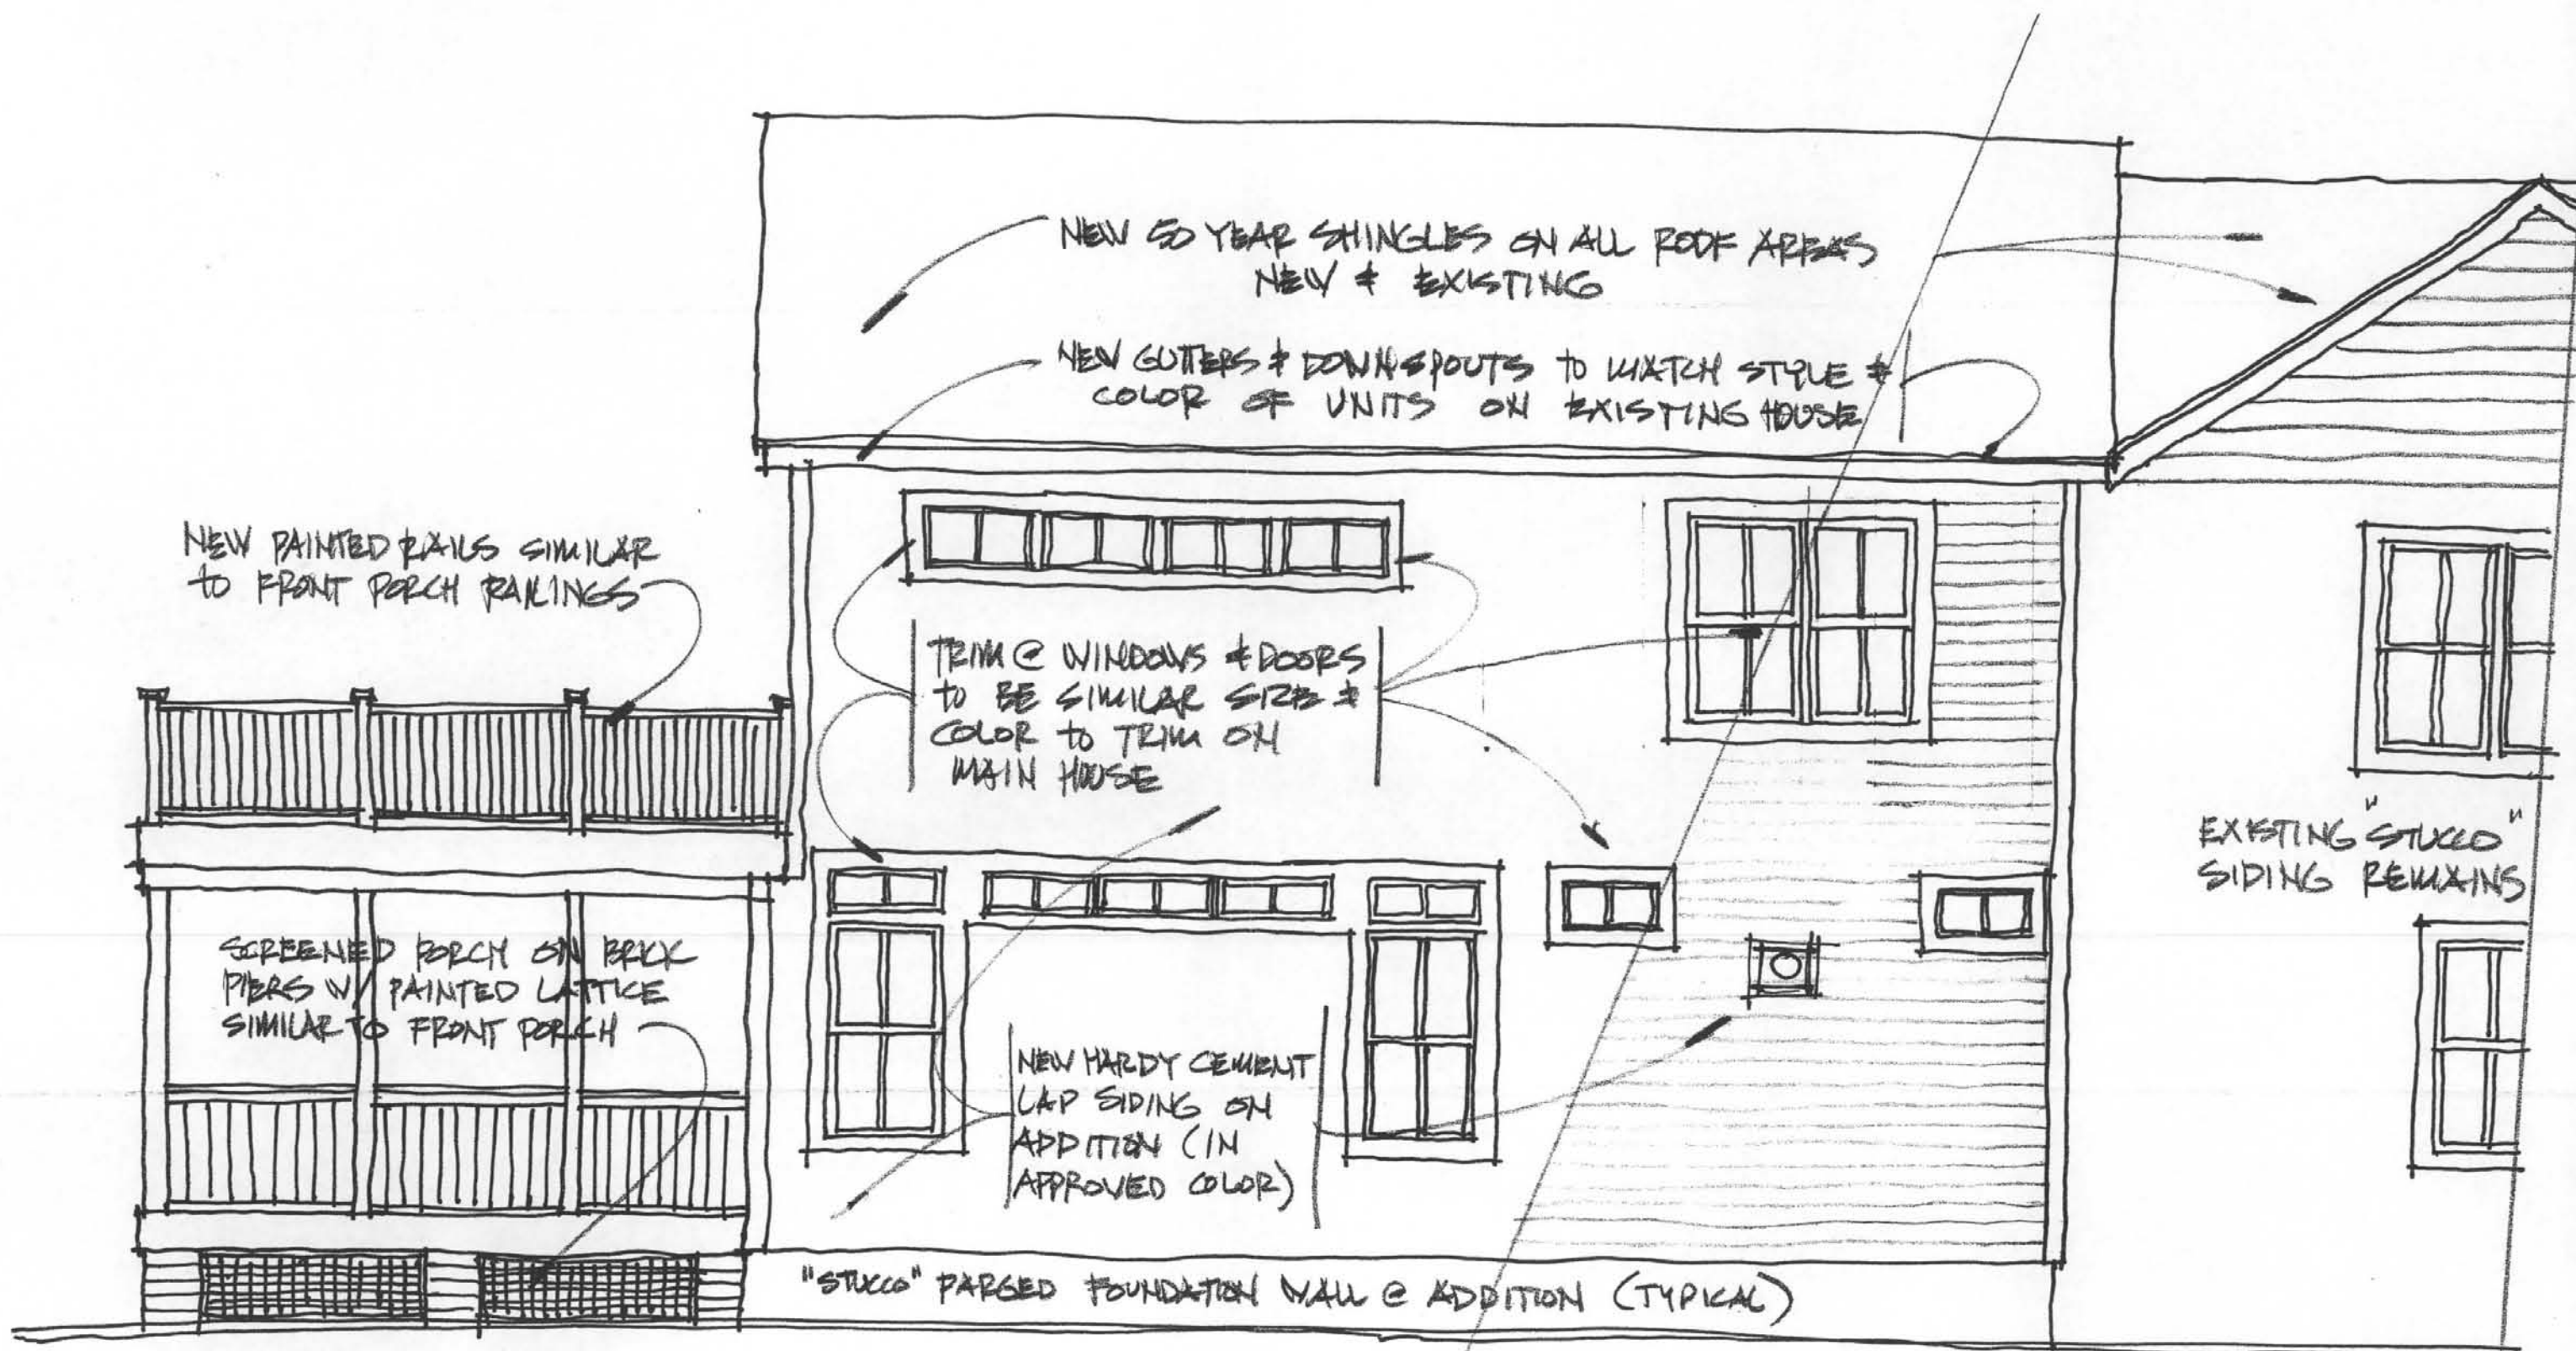 NEW 50 YEAR SHINGLES ON ALL ROOF AREAS
NEW & EXISTING
NEW GUTTERS & DOWNSPOUTS TO MATCH STYLE &
COLOR OF UNITS ON EXISTING HOUSE
NEW PAINTED RAILS SIMILAR
TO FRONT PORCH RAILINGS
TRIM @ WINDOWS & DOORS
TO BE SIMILAR SIZE &
COLOR TO TRIM ON
MAIN HOUSE
EXISTING "STUCCO"
SIDING REMAINS
SCREENED PORCH ON BRICK
PIERS W/ PAINTED LATTICE
SIMILAR TO FRONT PORCH
NEW HARDY CEMENT
LAP SIDING ON
ADDITION (IN
APPROVED COLOR)
"STUCCO" PARGED FOUNDATION WALL @ ADDITION (TYPICAL)